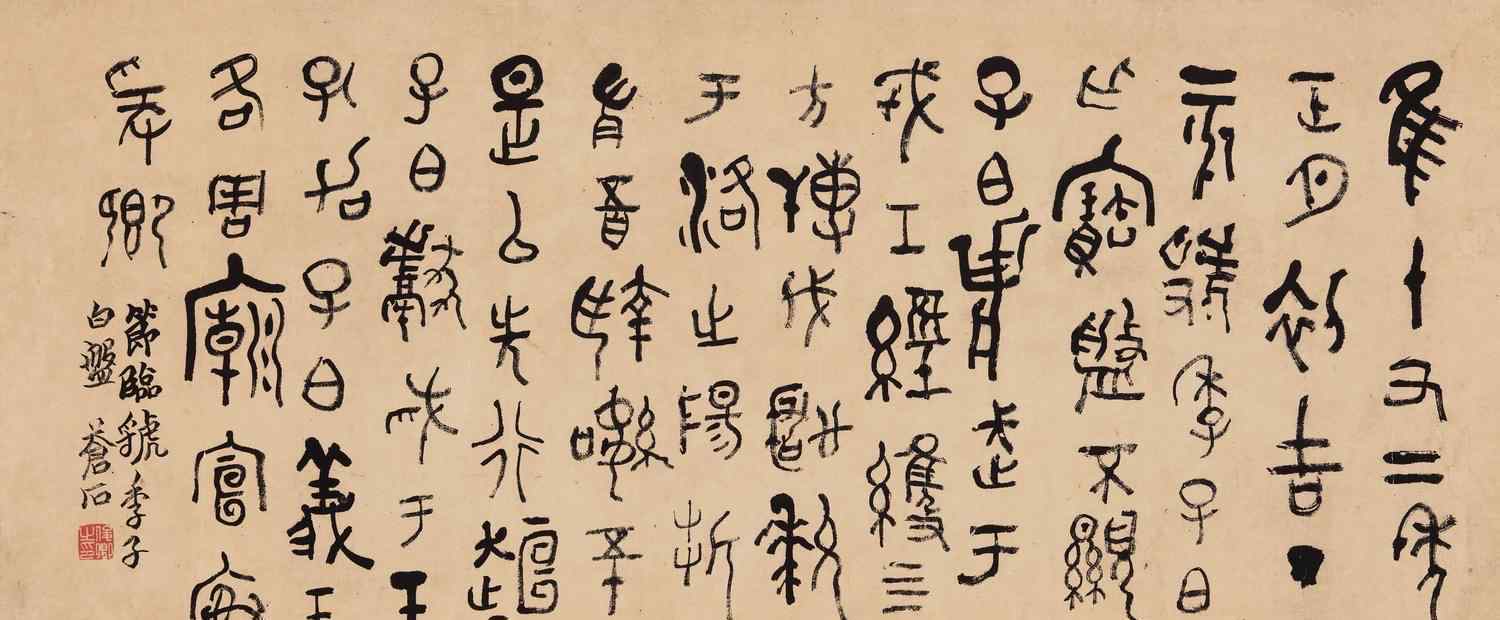 隹十又二年
正月初吉丁
亥虢季子白
乍寶盤不顯
子白壯武于
戎工經維四
方搏伐玁狁
于洛之陽折
首五百執訊五十
是以先行桓
子白獻馘于王
孔加子白義王
各周廟宣榭
爰卿
節臨虢季子
白盤 蒼石
俊卿之印